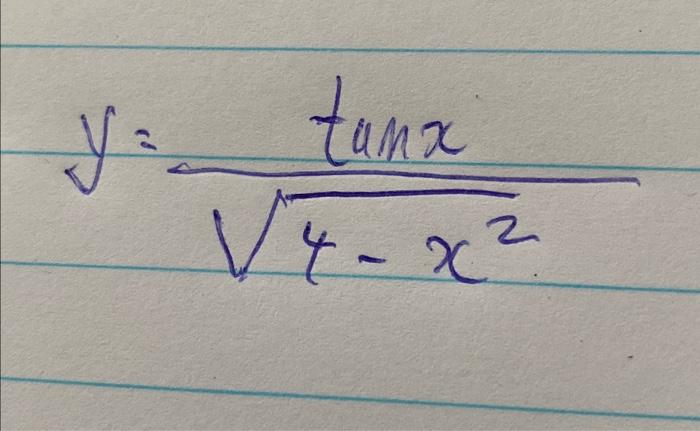 y = tanx / √(4 - x²)